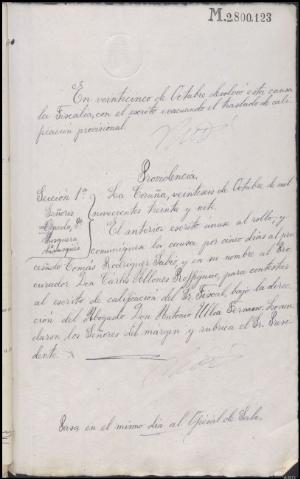 M.2800.123
En veinticinco de Octubre devolvió esta causa
la Fiscalia, con el escrito evacuando el traslado de cali-
ficacion provisional.
Providencia.
Sección 1ª
Señores
La Coruña, veintiseis de Octubre de mil
novecientos veinte y siete.
El anterior escrito únase al rollo, y
comuníquese la causa por cinco dias al pro-
cesado Tomás Rodriguez Babío, y en su nombre al Pro-
curador Don Carlos Allones para contestar
al escrito de calificación del Sr. Fiscal, bajo la direc-
ción del Abogado Don Antonio Ulloa Lo man-
daron los Señores del margen y rubrica el Sr. Presi-
dente.
Pasa en el mismo dia al Oficial de Sala.